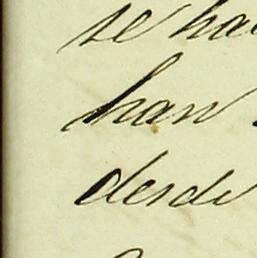 se ha
han
desde